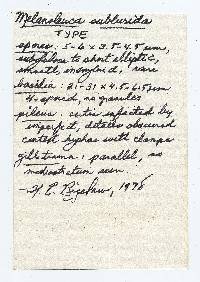 Melanoleuca sublurida
TYPE
spores: 5-6 x 3.5-4.5 µm,
subglobose to short elliptic,
smooth, inamyloid, rare
basidia: 21-31 x 4.5-6.5 µm
4-spored, no granules
pileus: center infected by
imperfect, details obscured
context hyphae with clamps
gill trama: parallel, no
mediostratum seen.
H E Bigelow, 1978